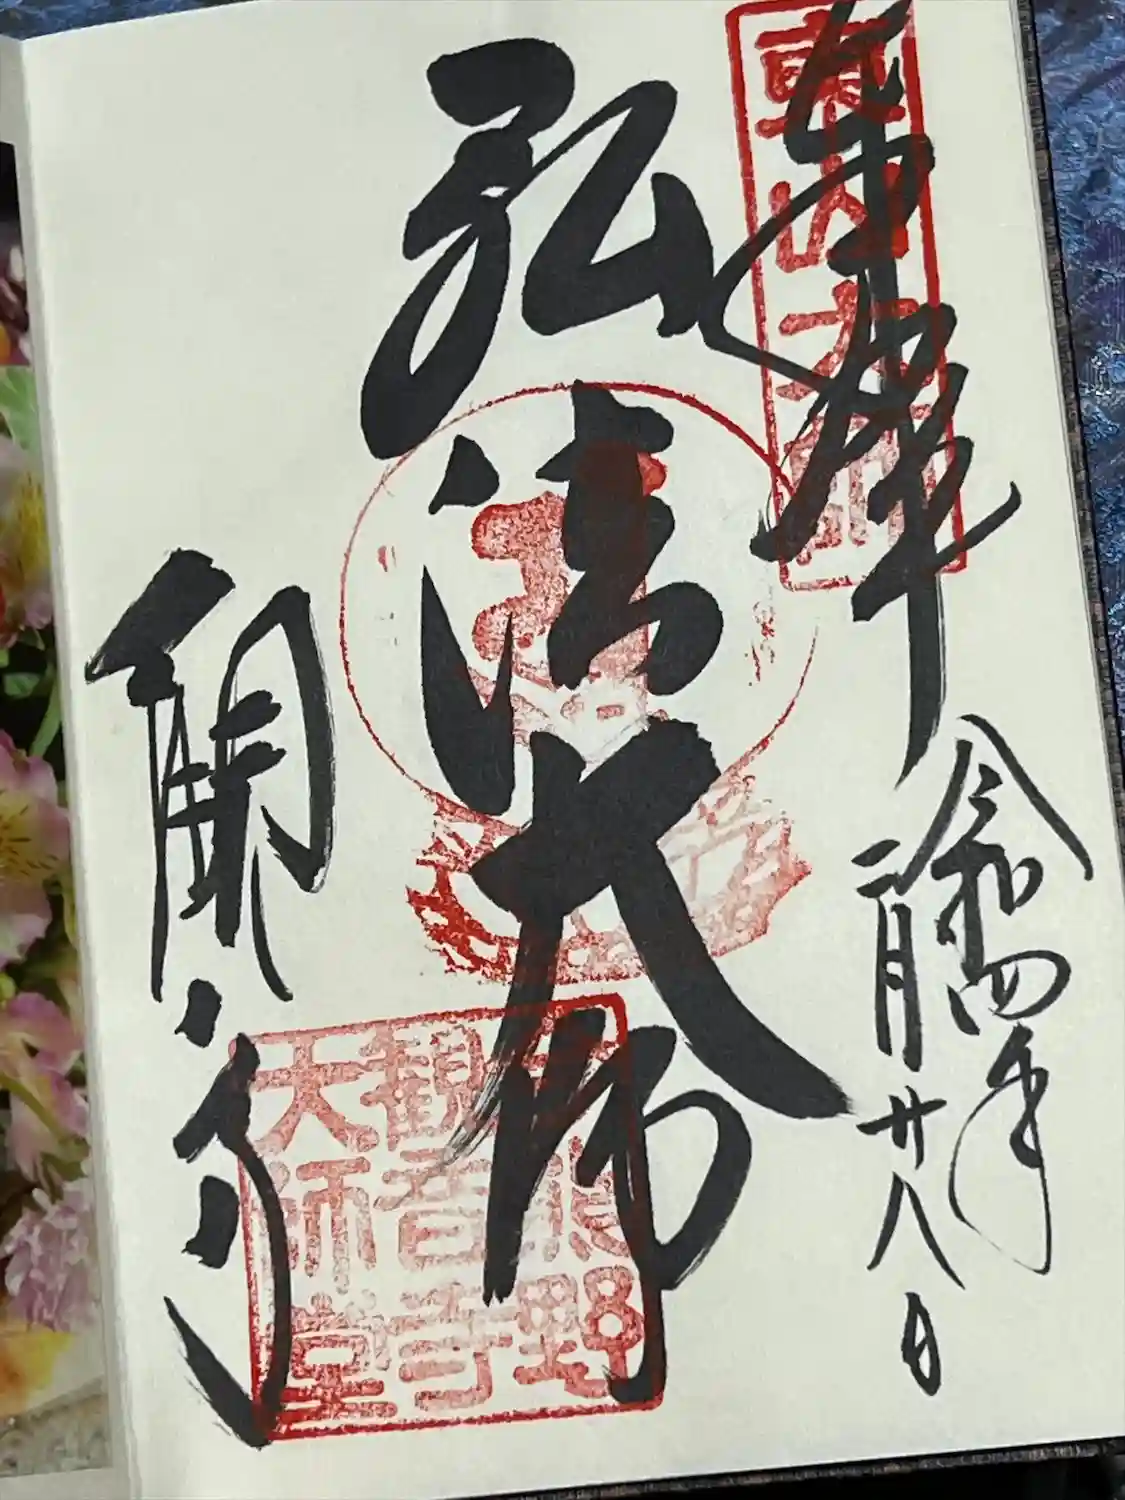 奉拝
東山大師
令和四年
二月廿八日
弘法大師
今熊野
観音寺
大師堂